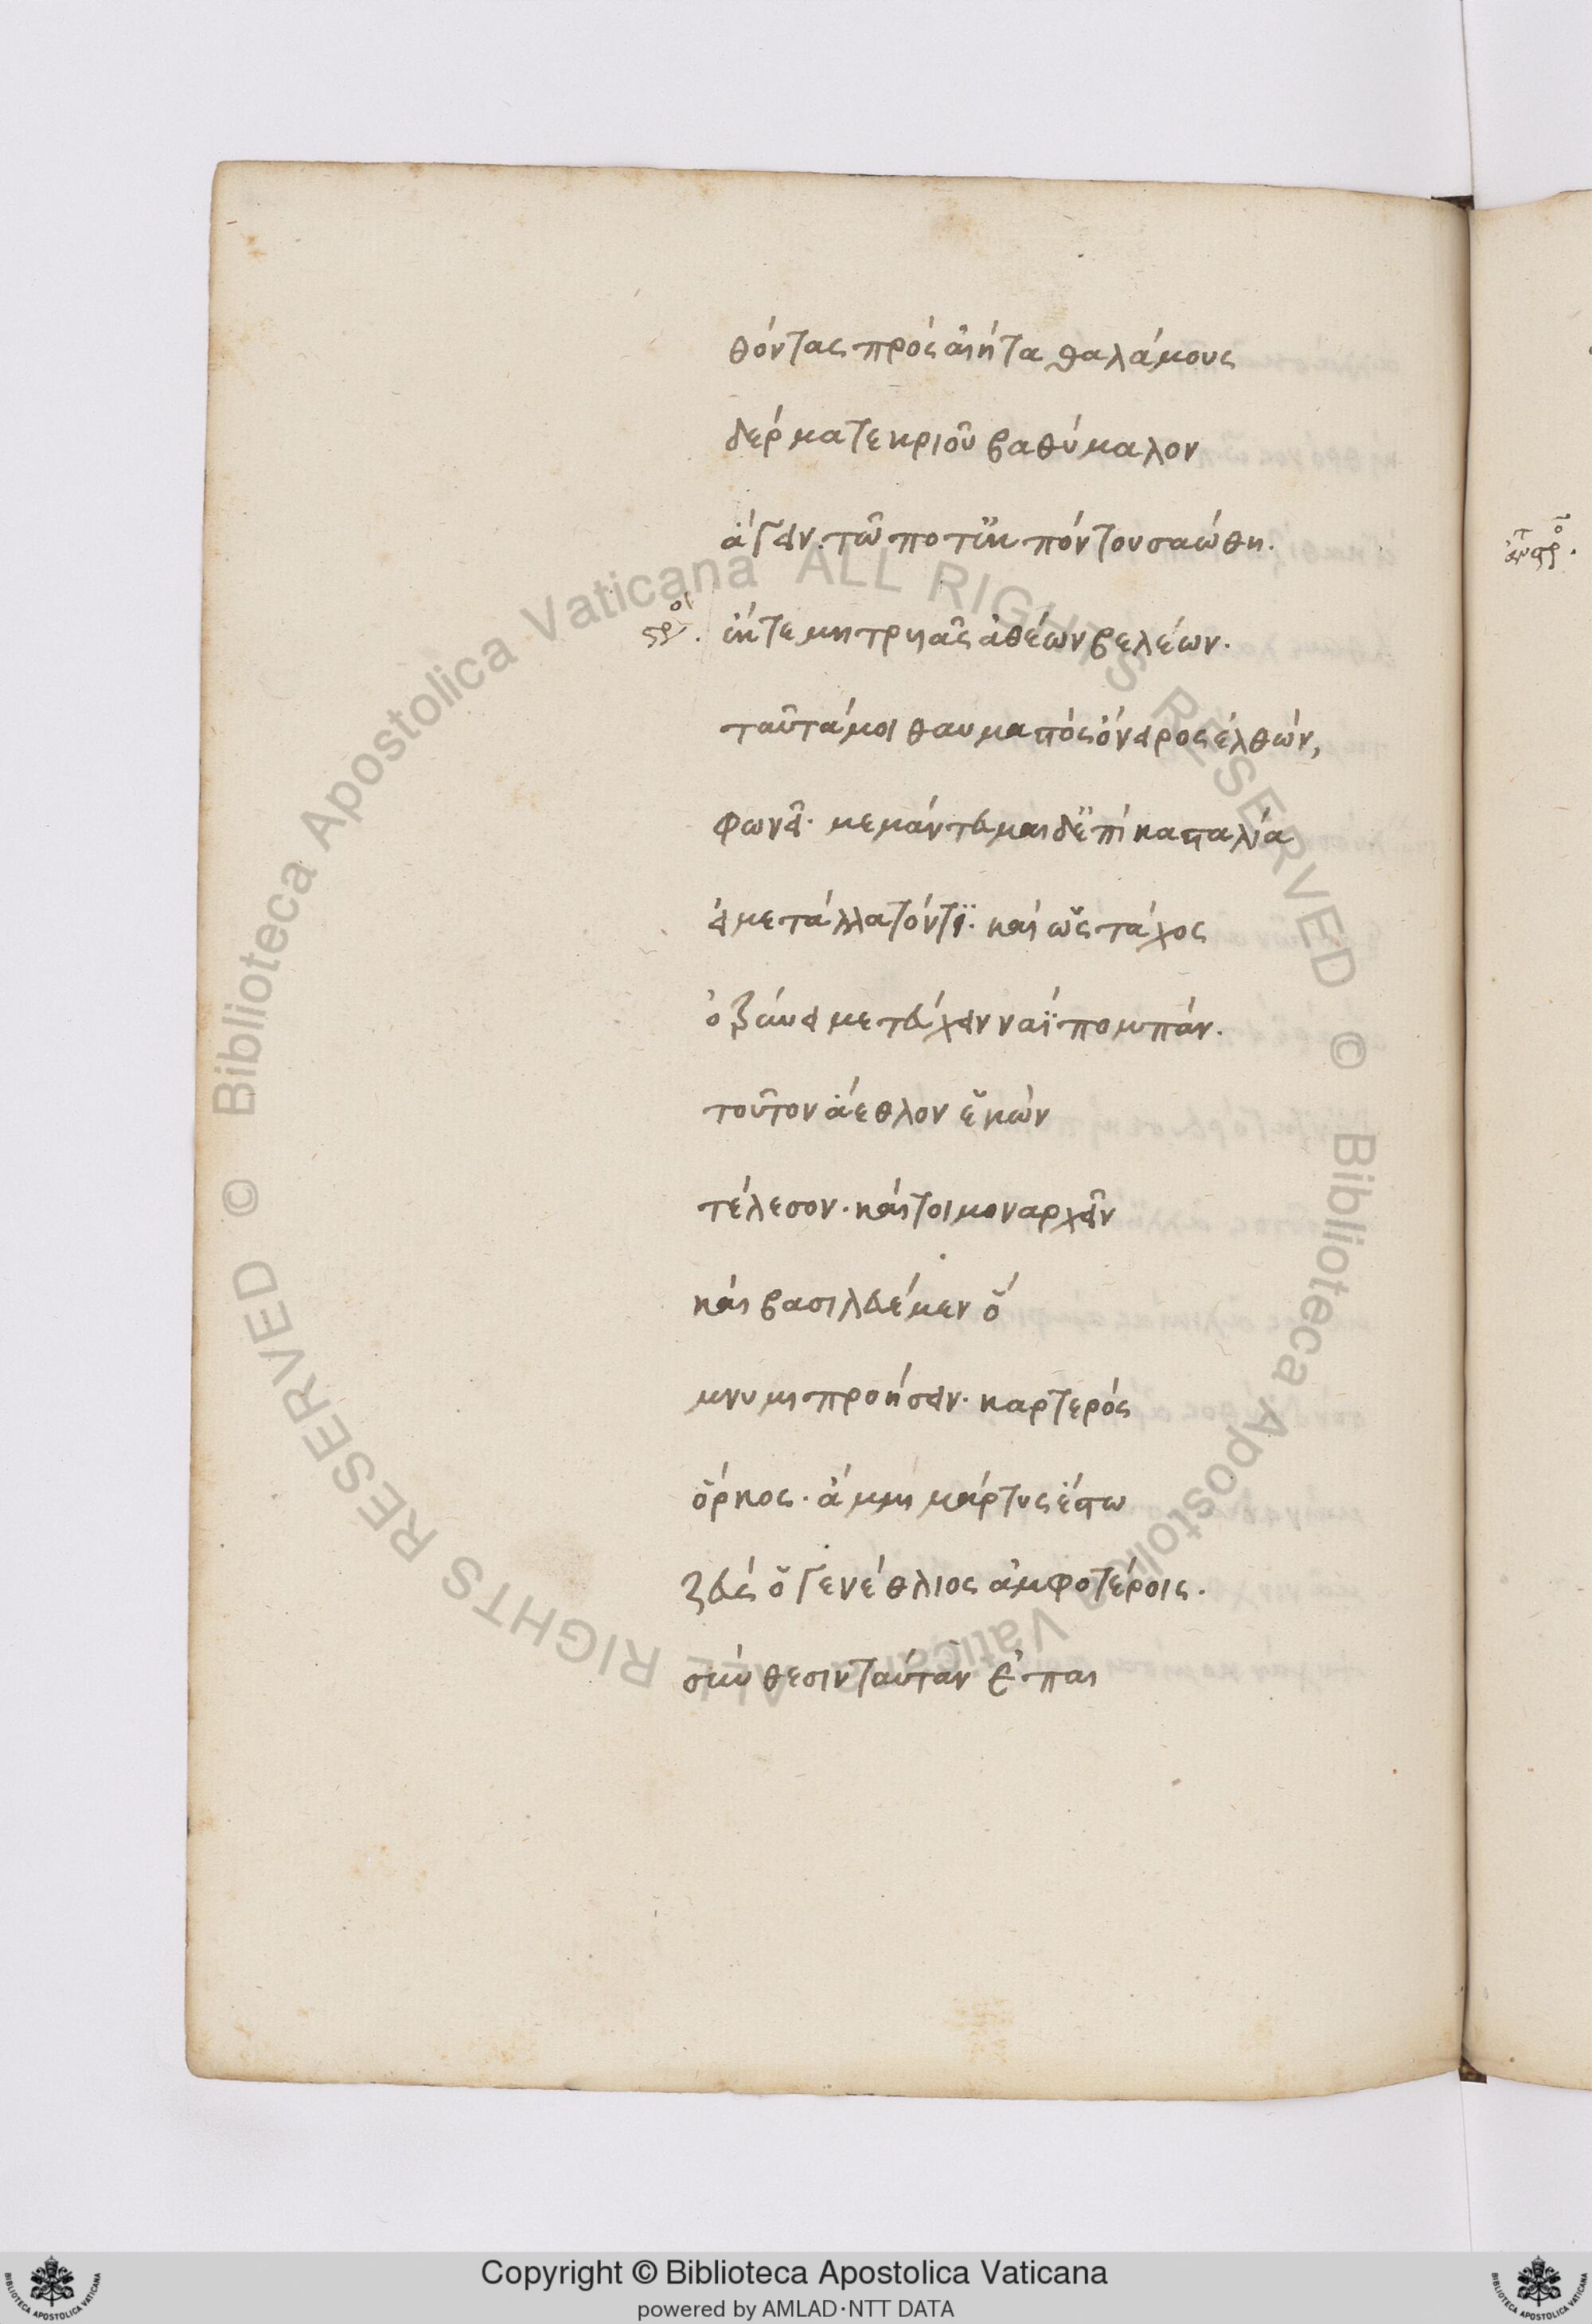 θόντας πρὸς αἰήτα θαλάμους
δέρμα τε κριοῦ βαθύμαλον
ἄγειν. τῶ ποτ' ἐκ πόντου σαώθη.
στρο. ἔκ τε μητρυιᾶς ἀθέων βελέων.
ταῦτά μοι θαυμαστὸς ὄνειρος ἐλθών,
φωνεῖ. μεμάντευμαι δ' ἐπὶ κασταλία
εἰ μετάλλατόν τι. καὶ ὡς τάχος
ὀτρύνει με τεύχειν ναῒ πομπάν.
τοῦτον ἄεθλον ἑκὼν
τέλεσον. καί τοι μοναρχεῖν
καὶ βασιλευέμεν ὄ
μνυμι προήσειν. καρτερὸς
ὅρκος. ἄμμι μάρτυς ἔστω
ζεὺς ὁ γενέθλιος ἀμφοτέροις.
σύνθεσιν ταύταν ἐπαι
ἀντιστρο.
Biblioteca Apostolica Vaticana ALL RIGHTS RESERVED ©
Biblioteca Apostolica Vaticana ALL RIGHTS RESERVED ©
Copyright © Biblioteca Apostolica Vaticana
powered by AMLAD·NTT DATA
BIBLIOTECA APOSTOLICA VATICANA
BIBLIOTECA APOSTOLICA VATICANA